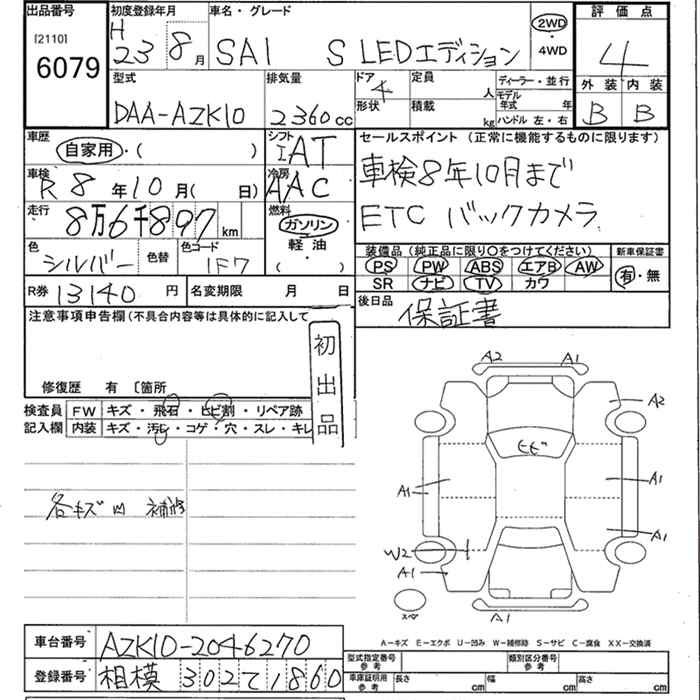 出品番号 初度登録年月 車名・グレード 評価点
[2110] H 2WD
6079 23 8月 SAI S LEDエディション ・ 4
4WD
外装 内装
B B
型式 排気量 ドア 定員 ディーラー・並行
4 人 モデル年式 年
形状 積載 kg ハンドル 左・右
DAA-AZK10 2360cc
車歴 シフト セールスポイント (正常に機能するものに限ります)
自家用・( ) IAT
車検 冷房 車検8年10月まで
R8年10月( 日) AAC
走行 燃料 ETC バックカメラ
8万6千897km ガソリン
軽油
色 色替 色コード ( )
シルバー 1F7
装備品 (純正品に限り○をつけてください) 新車保証書
PS PW ABS エアB AW 有・無
SR ナビ TV カワ
R券 13140円 名変期限 月 日 後日品
保証書
注意事項申告欄 (不具合内容等は具体的に記入して
初出品
修復歴 有 〔箇所
検査員 FW キズ・飛石・ヒビ割・リペア跡
記入欄 内装 キズ・汚レ・コゲ・穴・スレ・キレ
各キズ凹 補修
A2 A1
A2
ヒビ
A1 A1
A1
W2
A1
スペア
A1
A-キズ E-エクボ U-凹み W-補修跡 S-サビ C-腐食 XX-交換済
車台番号 AZK10-2046270
型式指定番号 参考 類別区分番号 参考
登録番号 相模 302 て 1860
車庫証明用 参考 長さ cm 幅 cm 高さ cm